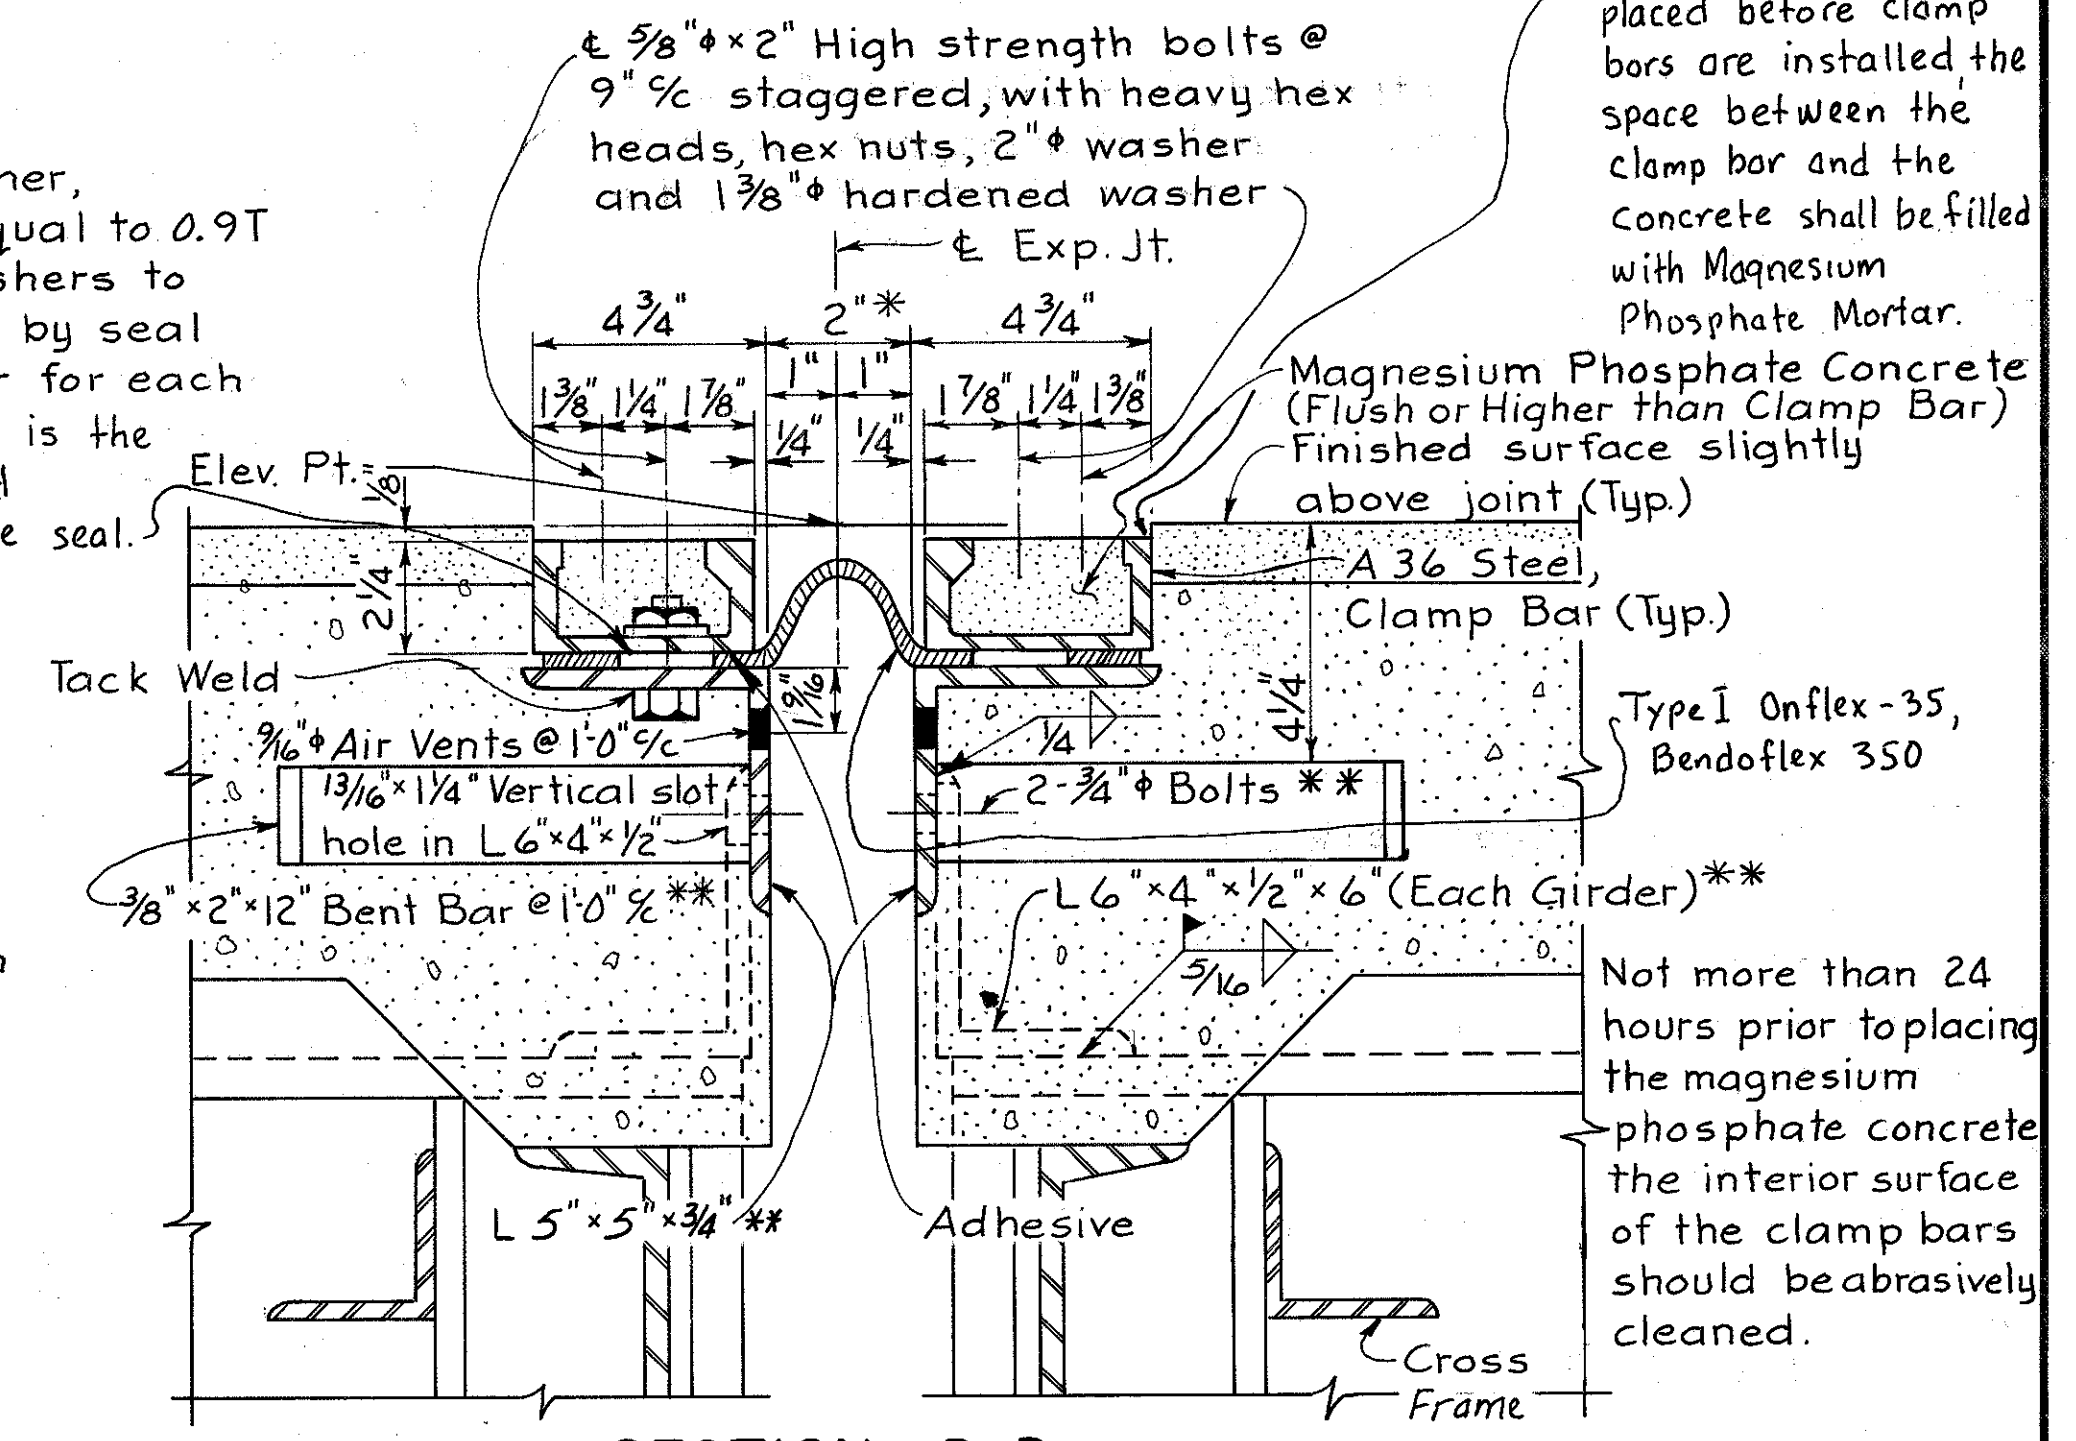 ℄ 5/8"φ × 2" High strength bolts @
9" c/c staggered, with heavy hex
heads, hex nuts, 2"φ washer
and 1 3/8"φ hardened washer
℄ Exp. Jt.
placed before clamp
bars are installed, the
space between the
clamp bar and the
concrete shall be filled
with Magnesium
Phosphate Mortar.
qual to 0.9T
shers to
by seal
for each
is the
e seal.
4 3/4" 2"* 4 3/4"
1" 1"
1 3/8" 1 1/4" 1 7/8" 1 7/8" 1 1/4" 1 3/8"
1/4" 1/4"
Magnesium Phosphate Concrete
(Flush or Higher than Clamp Bar)
Finished surface slightly
above joint (Typ.)
Elev. Pt.
1/8"
2 1/4"
A 36 Steel,
Clamp Bar (Typ.)
Tack Weld
1 9/16"
4 1/4"
1/4
Type I Onflex-35,
Bendoflex 350
9/16"φ Air Vents @ 1'-0" c/c
13/16" × 1 1/4" Vertical slot
hole in L 6" × 4" × 1/2"
2-3/4"φ Bolts **
3/8" × 2" × 12" Bent Bar @ 1'-0" c/c **
L 6" × 4" × 1/2" × 6" (Each Girder) **
5/16
Not more than 24
hours prior to placing
the magnesium
phosphate concrete
the interior surface
of the clamp bars
should be abrasively
cleaned.
L 5" × 5" × 3/4" **
Adhesive
Cross
Frame